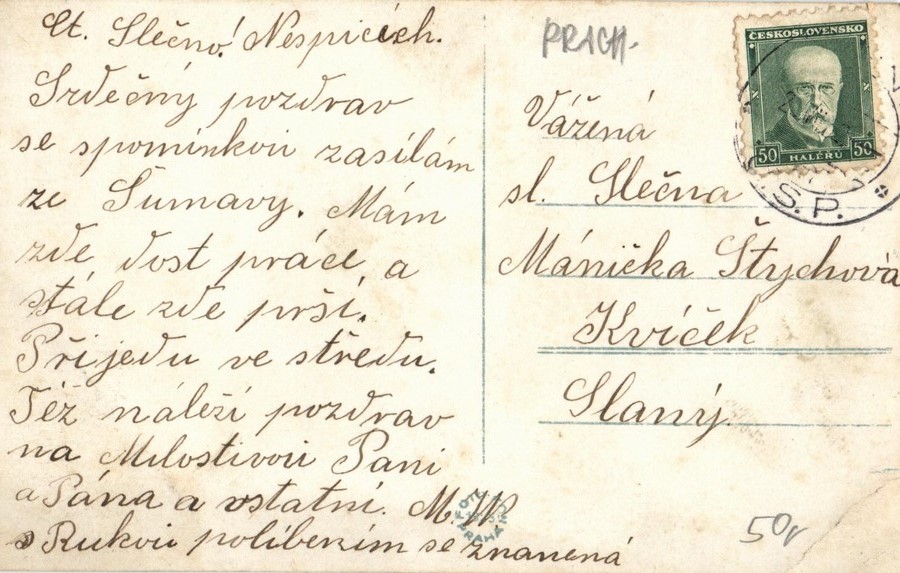 Ct. Slečno! Nespicích.
Srdečný pozdrav
se spomínkou zasílám
ze Šumavy. Mám
zde dost práce, a
stále zde prší.
Přijedu ve středu.
Též náleží pozdrav
na Milostivou Paní
a Pána a ostatní. M.
s Rukou políbením se znamená
PRACH.
ČESKOSLOVENSKO
50 HALÉŘŮ 50
S.P.
Vážená
sl. Slečna
Mánička Štychová
Kvíček
Slaný.
FOTO
PRAHA
50,